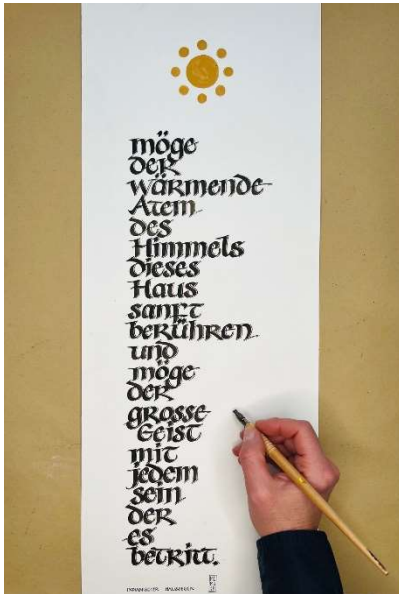 möge
der
wärmende
Atem
des
Himmels
dieses
Haus
sanft
berühren
und
möge
der
grosse
Geist
mit
jedem
sein
der
es
betritt.